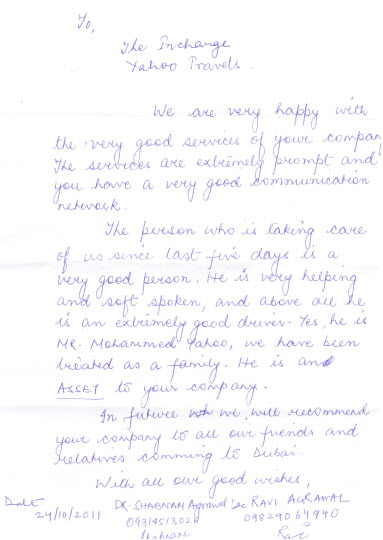 To,
The Incharge
Yahoo Travels.
We are very happy with
the very good services of your compan
The services are extremely prompt and
you have a very good communication
network.
The person who is taking care
of us since last five days is a
very good person. He is very helping
and soft spoken, and above all he
is an extremely good driver. Yes, he is
MR. Mohammed Yahoo, we have been
treated as a family. He is an
ASSET to your company.
In future we will recommend
your company to all our friends and
relatives comming to Dubai.
With all our good wishes,
Date DR. SHABNAM Agrawal RAVI AGRAWAL
24/10/2011 09314513026 09829064940
Shabnam Ravi